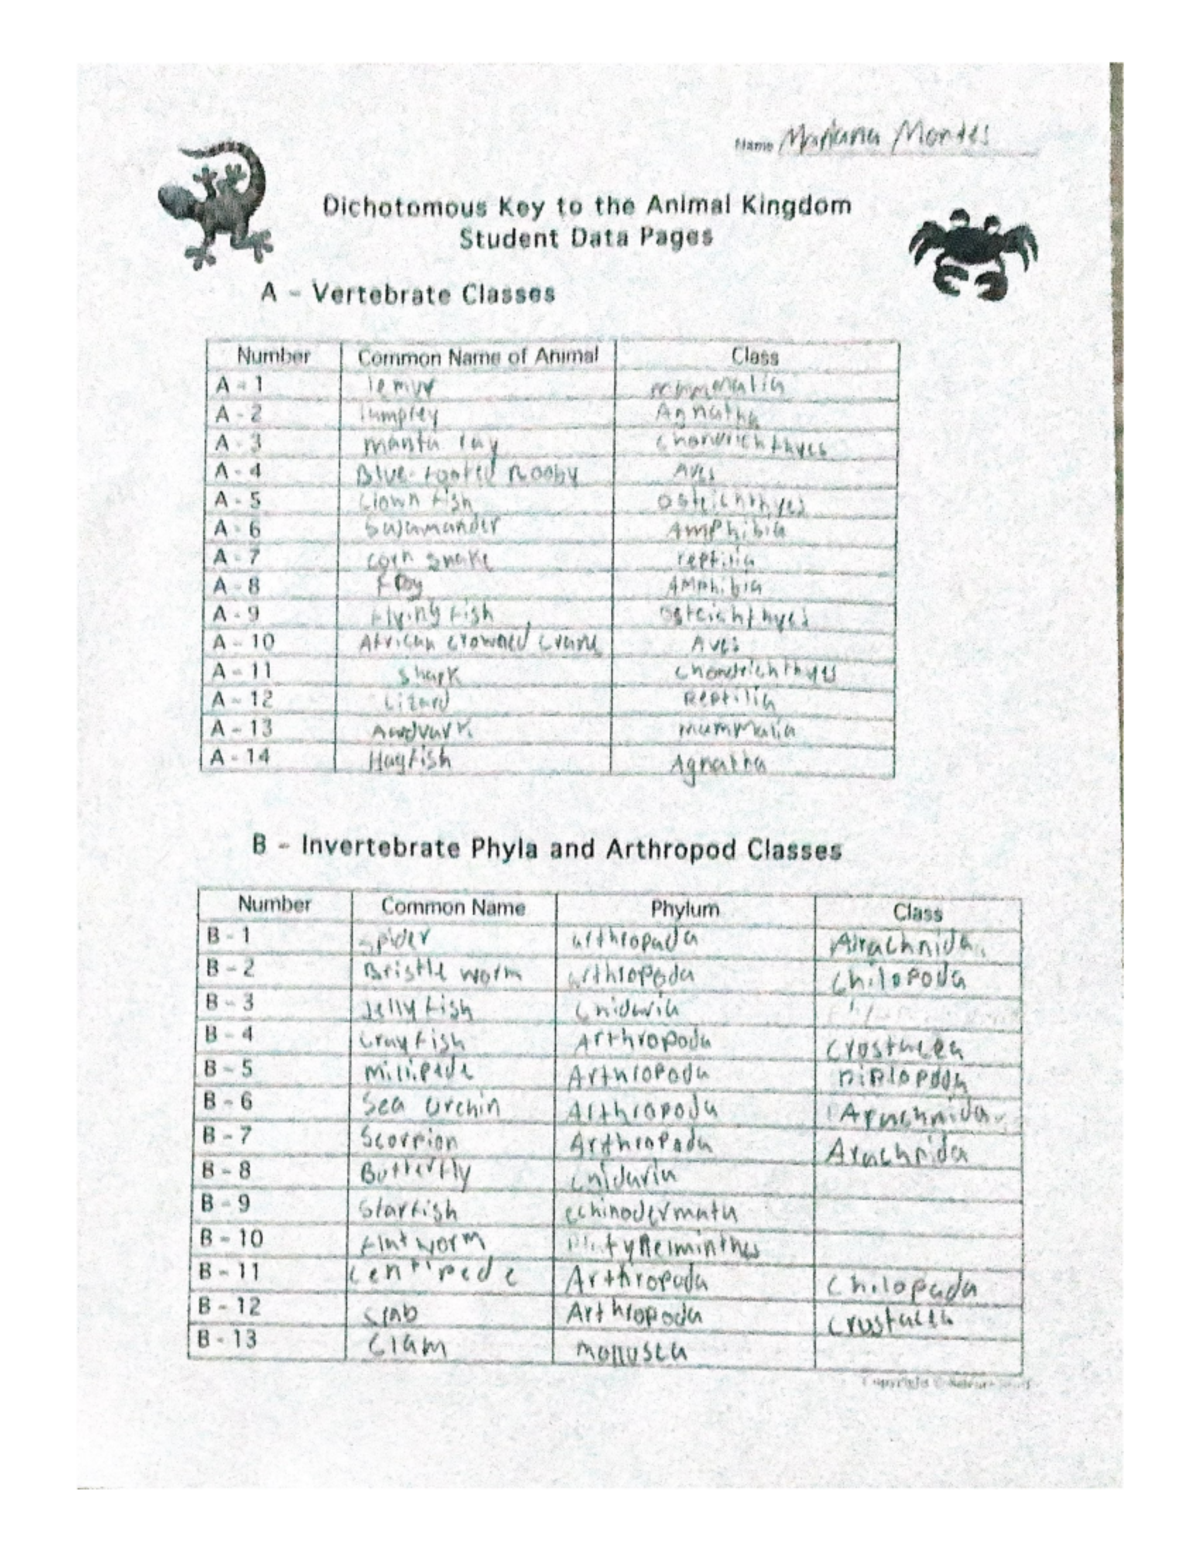 Name Mariana Montes
Dichotomous Key to the Animal Kingdom
Student Data Pages
A - Vertebrate Classes
Number Common Name of Animal Class
A - 1 lemur mammalia
A - 2 lamprey Agnatha
A - 3 manta ray Chondrichthyes
A - 4 Blue-footed Booby Aves
A - 5 Clown fish osteichthyes
A - 6 Salamander Amphibia
A - 7 corn snake reptilia
A - 8 Frog Amphibia
A - 9 Flying fish osteichthyes
A - 10 African crowned crane Aves
A - 11 Shark Chondrichthyes
A - 12 Lizard Reptilia
A - 13 Aardvark mammalia
A - 14 Hagfish Agnatha
B - Invertebrate Phyla and Arthropod Classes
Number Common Name Phylum Class
B - 1 Spider arthropoda Arachnida
B - 2 Bristle worm arthropoda Chilopoda
B - 3 Jelly fish Cnidaria
B - 4 Cray fish Arthropoda Crostacea
B - 5 Millipede Arthropoda Diplopoda
B - 6 Sea Urchin Arthropoda Arachnida
B - 7 Scorpion Arthropoda Arachnida
B - 8 Butterfly Cnidaria
B - 9 Starfish echinodermata
B - 10 Flat worm Platyhelminthes
B - 11 Centipede Arthropoda Chilopoda
B - 12 Crab Arthropoda Crustacea
B - 13 Clam mollusca